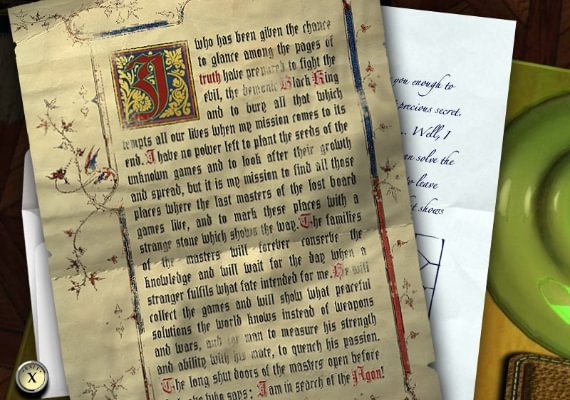 I who has been given the chance
to glance among the pages of
truth have prepared to fight the
evil, the demonic Black King
and to bury all that which
tempts all our lives when my mission comes to its
end. I have no power left to plant the seeds of the
unknown games and to look after their growth
and spread, but it is my mission to find all those
places where the last masters of the lost board
games live, and to mark these places with a
strange stone which shows the way. The families
of the masters will forever conserve the
knowledge and will wait for the day when a
stranger fulfils what fate intended for me. He will
collect the games and will show what peaceful
solutions the world knows instead of weapons
and wars, and for man to measure his strength
and ability with his mate, to quench his passion.
The long shut doors of the masters open before
who says: I am in search of the Agon!
you enough to
precious secret.
... Well, I
solve the
to leave
shows
X